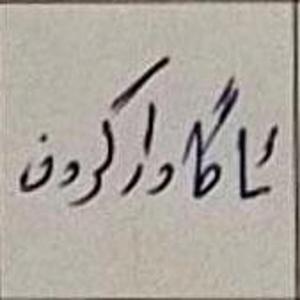 ئاگادارکردن